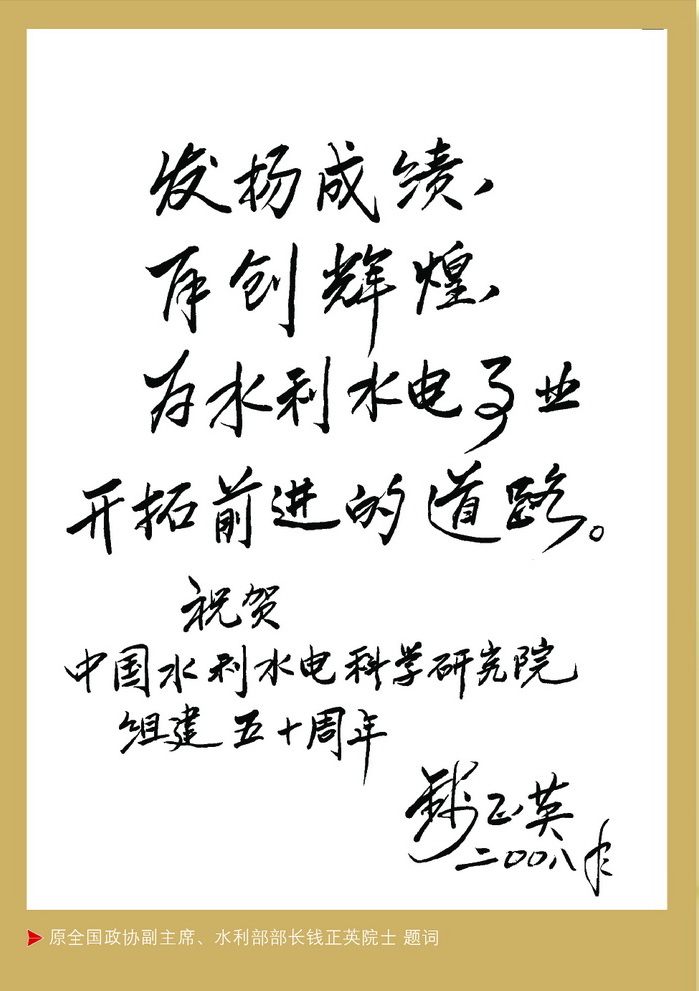 发扬成绩，
再创辉煌，
为水利水电事业
开拓前进的道路。
祝贺
中国水利水电科学研究院
组建五十周年
钱正英
二〇〇八年
原全国政协副主席、水利部部长钱正英院士 题词